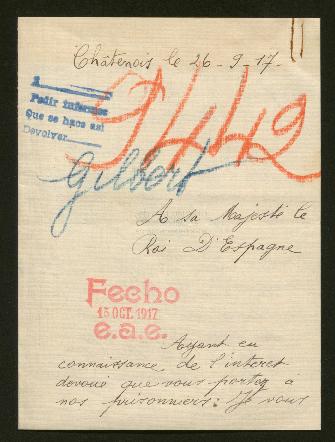 Châtenois le 26-9-17-
9442
A
Pedir informes
Que se hace así
Devolver
Gilbert
A sa Majesté le
Roi D'Espagne
Fecho
15 OCT. 1917
e.a.e.
Ayant eu
connaissance de l'interet
devoué que vous portez à
nos prisonniers: Je vous